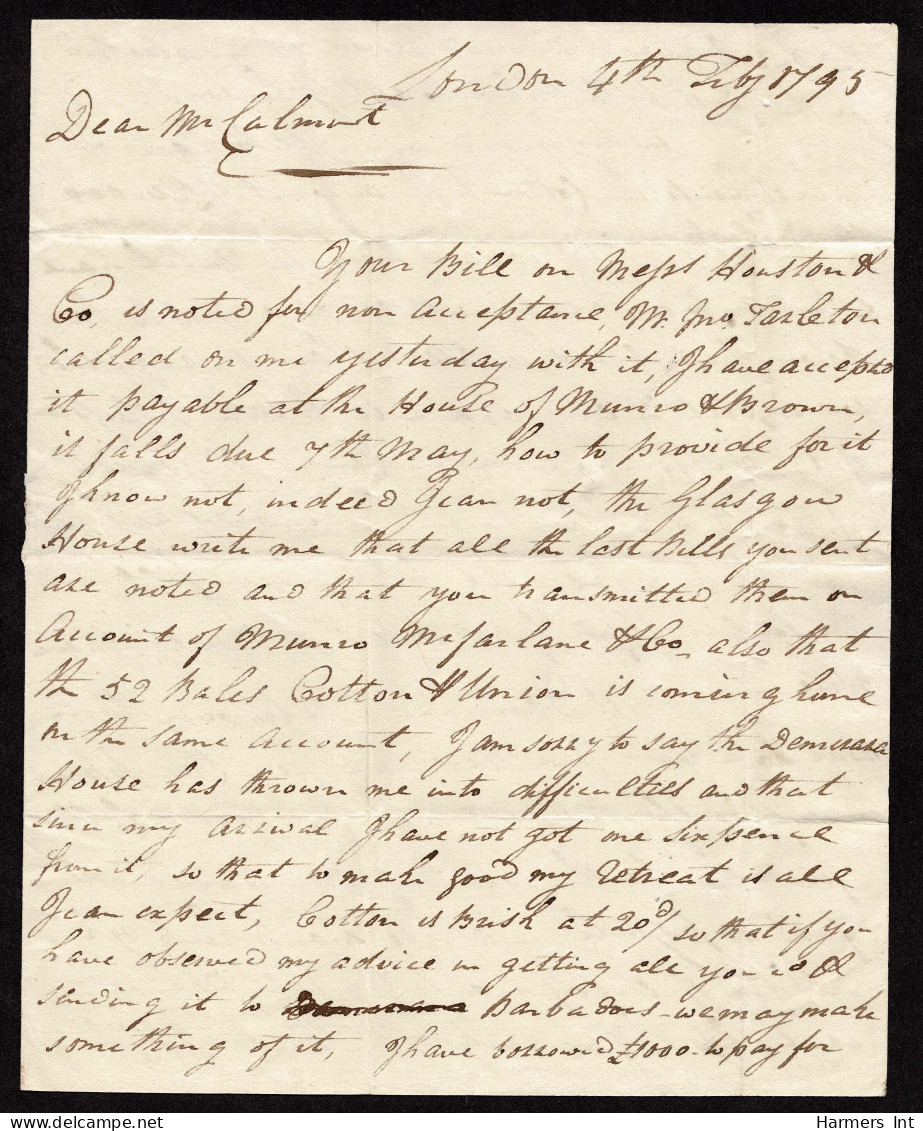 London 4th Feby 1795
Dear McCalmont
Your Bill on Messrs Houston &
Co, is noted for non Acceptance, Mr. Jno. Tarleton
called on me yesterday with it, I have accepted
it payable at the House of Munro & Brown,
it falls due 7th May, how to provide for it
I know not, indeed I can not, the Glasgow
House write me that all the last Bills you sent
are noted and that you transmitted them on
Account of Munro McFarlane & Co, also that
the 52 Bales Cotton Union is coming home
on the same Account, I am sorry to say the Demerara
House has thrown me into difficulties and that
since my arival I have not got one sixpence
from it, so that to make good my Retreat is all
I can expect, Cotton is Brisk at 20d/ so that if you
have observed my advice in getting all you cd &
sending it to Barbadoes - we may make
something of it, I have borrowed £1000 - to pay for
Harmers Int